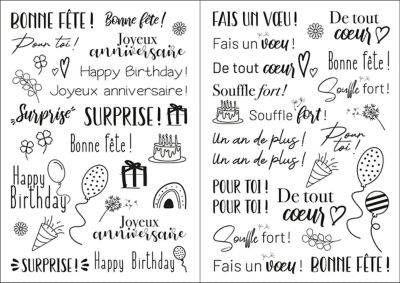 BONNE FÊTE!
Bonne fête!
Pour toi!
Joyeux
anniversaire
Happy Birthday!
Joyeux anniversaire!
Surprise
SURPRISE!
Bonne fête!
Happy
Birthday
Joyeux
anniversaire
SURPRISE!
Happy Birthday!
FAIS UN VŒU!
De tout
cœur
Fais un vœu!
De tout cœur
Bonne fête!
Souffle fort!
Souffle fort!
Souffle fort!
Un an de plus!
Pour toi!
Un an de plus!
POUR TOI!
POUR TOI!
De tout
cœur
Souffle fort!
Fais un vœu!
BONNE FÊTE!